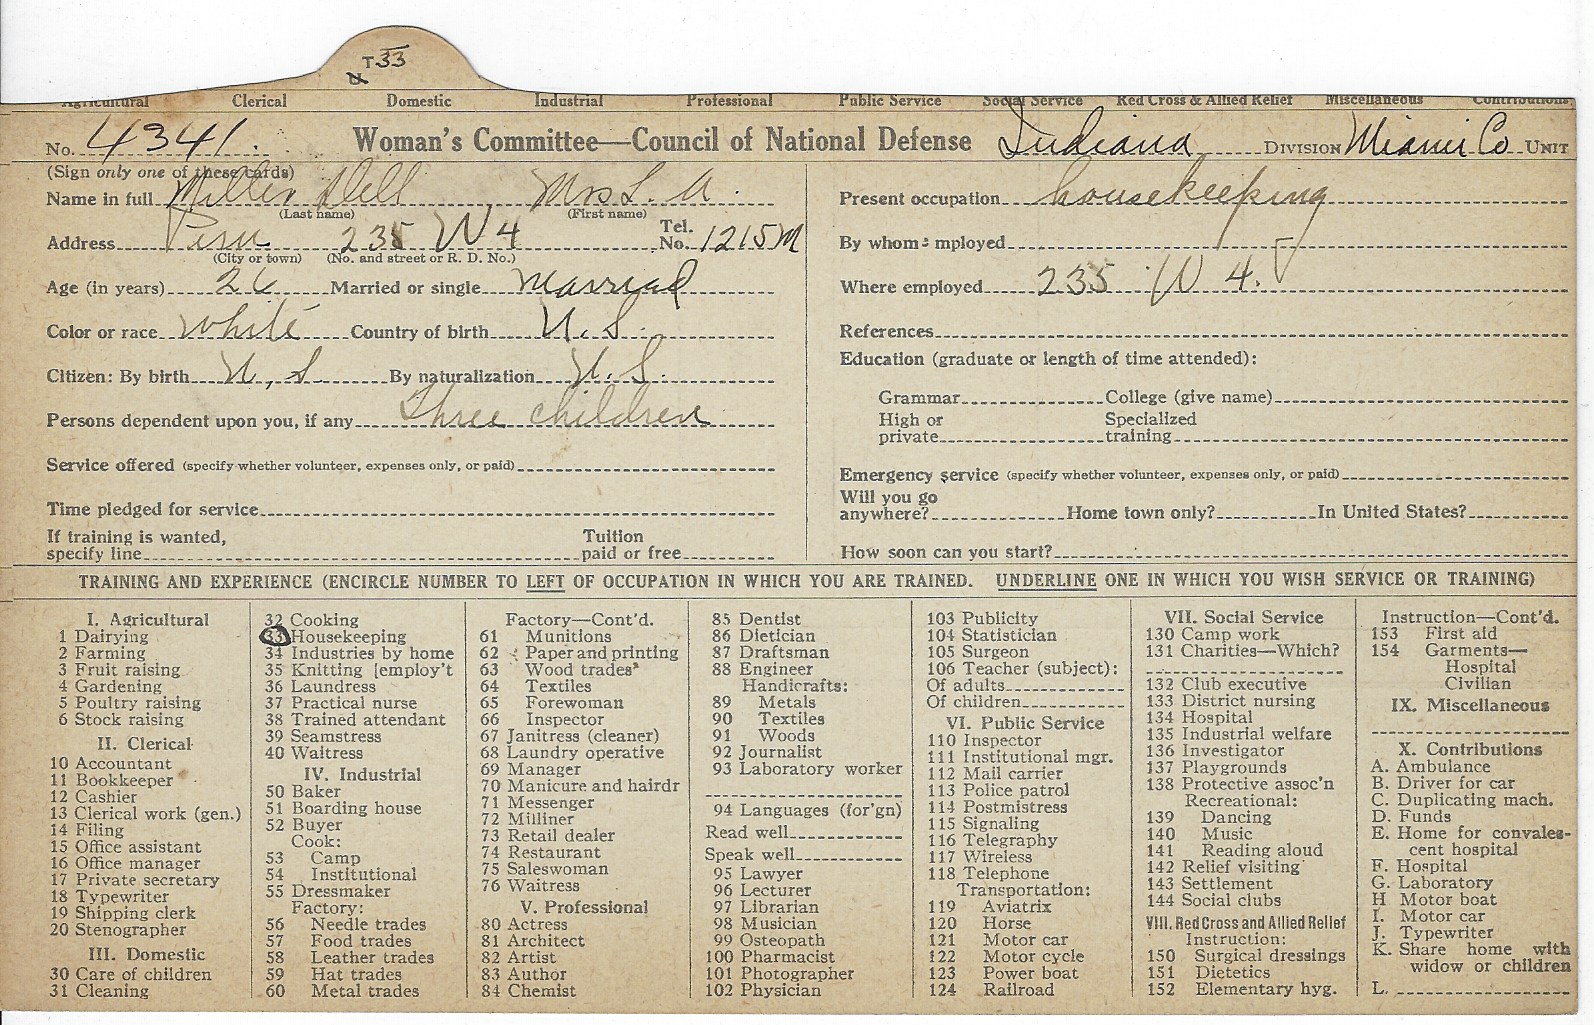 T 33
Agricultural Clerical Domestic Industrial Professional Public Service Social Service Red Cross & Allied Relief Miscellaneous Contributions
No. 4341. Woman's Committee—Council of National Defense Indiana DIVISION Miami Co UNIT
(Sign only one of these cards)
Name in full Miller Dell Mrs L. A.
(Last name) (First name)
Address Peru 235 W 4 Tel. No. 1215M
(City or town) (No. and street or R. D. No.)
Age (in years) 26 Married or single Married
Color or race White Country of birth U. S.
Citizen: By birth U. S. By naturalization U. S.
Persons dependent upon you, if any Three children
Service offered (specify whether volunteer, expenses only, or paid)
Time pledged for service
If training is wanted, specify line Tuition paid or free
Present occupation housekeeping
By whom employed
Where employed 235 W 4.
References
Education (graduate or length of time attended):
Grammar College (give name)
High or private Specialized training
Emergency service (specify whether volunteer, expenses only, or paid)
Will you go anywhere? Home town only? In United States?
How soon can you start?
TRAINING AND EXPERIENCE (ENCIRCLE NUMBER TO LEFT OF OCCUPATION IN WHICH YOU ARE TRAINED. UNDERLINE ONE IN WHICH YOU WISH SERVICE OR TRAINING)
I. Agricultural
1 Dairying
2 Farming
3 Fruit raising
4 Gardening
5 Poultry raising
6 Stock raising
II. Clerical
10 Accountant
11 Bookkeeper
12 Cashier
13 Clerical work (gen.)
14 Filing
15 Office assistant
16 Office manager
17 Private secretary
18 Typewriter
19 Shipping clerk
20 Stenographer
III. Domestic
30 Care of children
31 Cleaning
32 Cooking
33 Housekeeping
34 Industries by home
35 Knitting [employ't
36 Laundress
37 Practical nurse
38 Trained attendant
39 Seamstress
40 Waitress
IV. Industrial
50 Baker
51 Boarding house
52 Buyer
Cook:
53 Camp
54 Institutional
55 Dressmaker
Factory:
56 Needle trades
57 Food trades
58 Leather trades
59 Hat trades
60 Metal trades
Factory—Cont'd.
61 Munitions
62 Paper and printing
63 Wood trades
64 Textiles
65 Forewoman
66 Inspector
67 Janitress (cleaner)
68 Laundry operative
69 Manager
70 Manicure and hairdr
71 Messenger
72 Milliner
73 Retail dealer
74 Restaurant
75 Saleswoman
76 Waitress
V. Professional
80 Actress
81 Architect
82 Artist
83 Author
84 Chemist
85 Dentist
86 Dietician
87 Draftsman
88 Engineer
Handicrafts:
89 Metals
90 Textiles
91 Woods
92 Journalist
93 Laboratory worker
94 Languages (for'gn)
Read well
Speak well
95 Lawyer
96 Lecturer
97 Librarian
98 Musician
99 Osteopath
100 Pharmacist
101 Photographer
102 Physician
103 Publicity
104 Statistician
105 Surgeon
106 Teacher (subject):
Of adults
Of children
VI. Public Service
110 Inspector
111 Institutional mgr.
112 Mail carrier
113 Police patrol
114 Postmistress
115 Signaling
116 Telegraphy
117 Wireless
118 Telephone
Transportation:
119 Aviatrix
120 Horse
121 Motor car
122 Motor cycle
123 Power boat
124 Railroad
VII. Social Service
130 Camp work
131 Charities—Which?
132 Club executive
133 District nursing
134 Hospital
135 Industrial welfare
136 Investigator
137 Playgrounds
138 Protective assoc'n
Recreational:
139 Dancing
140 Music
141 Reading aloud
142 Relief visiting
143 Settlement
144 Social clubs
VIII. Red Cross and Allied Relief
Instruction:
150 Surgical dressings
151 Dietetics
152 Elementary hyg.
Instruction—Cont'd.
153 First aid
154 Garments—
Hospital
Civilian
IX. Miscellaneous
X. Contributions
A. Ambulance
B. Driver for car
C. Duplicating mach.
D. Funds
E. Home for convales-
cent hospital
F. Hospital
G. Laboratory
H Motor boat
I. Motor car
J. Typewriter
K. Share home with
widow or children
L.